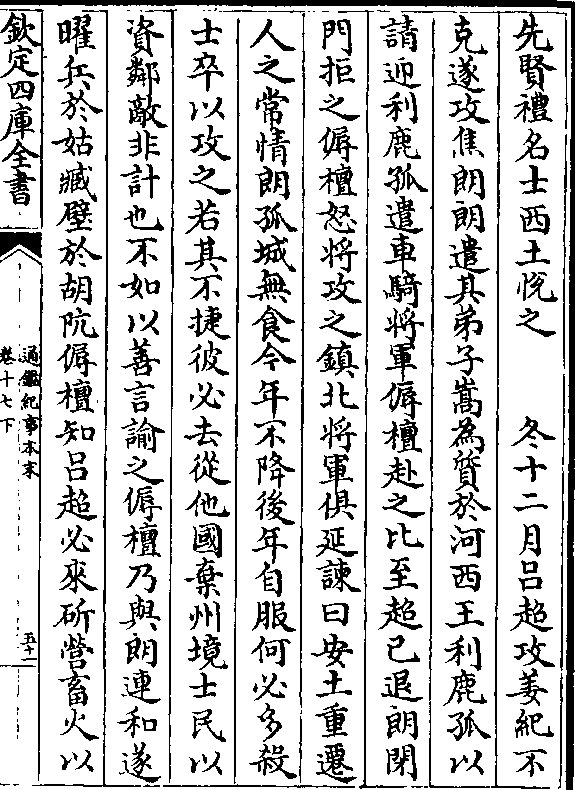 先賢禮名士西土悅之 冬十二月呂超攻姜紀不
克遂攻焦朗朗遣其弟子嵩為質於河西王利鹿孤以
請迎利鹿孤遣車騎將軍傉檀赴之比至超已退朗閉
門拒之傉檀怒將攻之鎮北將軍俱延諫曰安土重遷
人之常情朗孤城無食今年不降後年自服何必多殺
士卒以攻之若其不捷彼必去從他國棄州境士民以
資鄰敵非計也不如以善言諭之傉檀乃與朗連和遂
曜兵於姑臧壁於胡阬傉檀知呂超必來斫營畜火以
欽定四庫全書
通鑑紀事本末
卷十七下
五十一